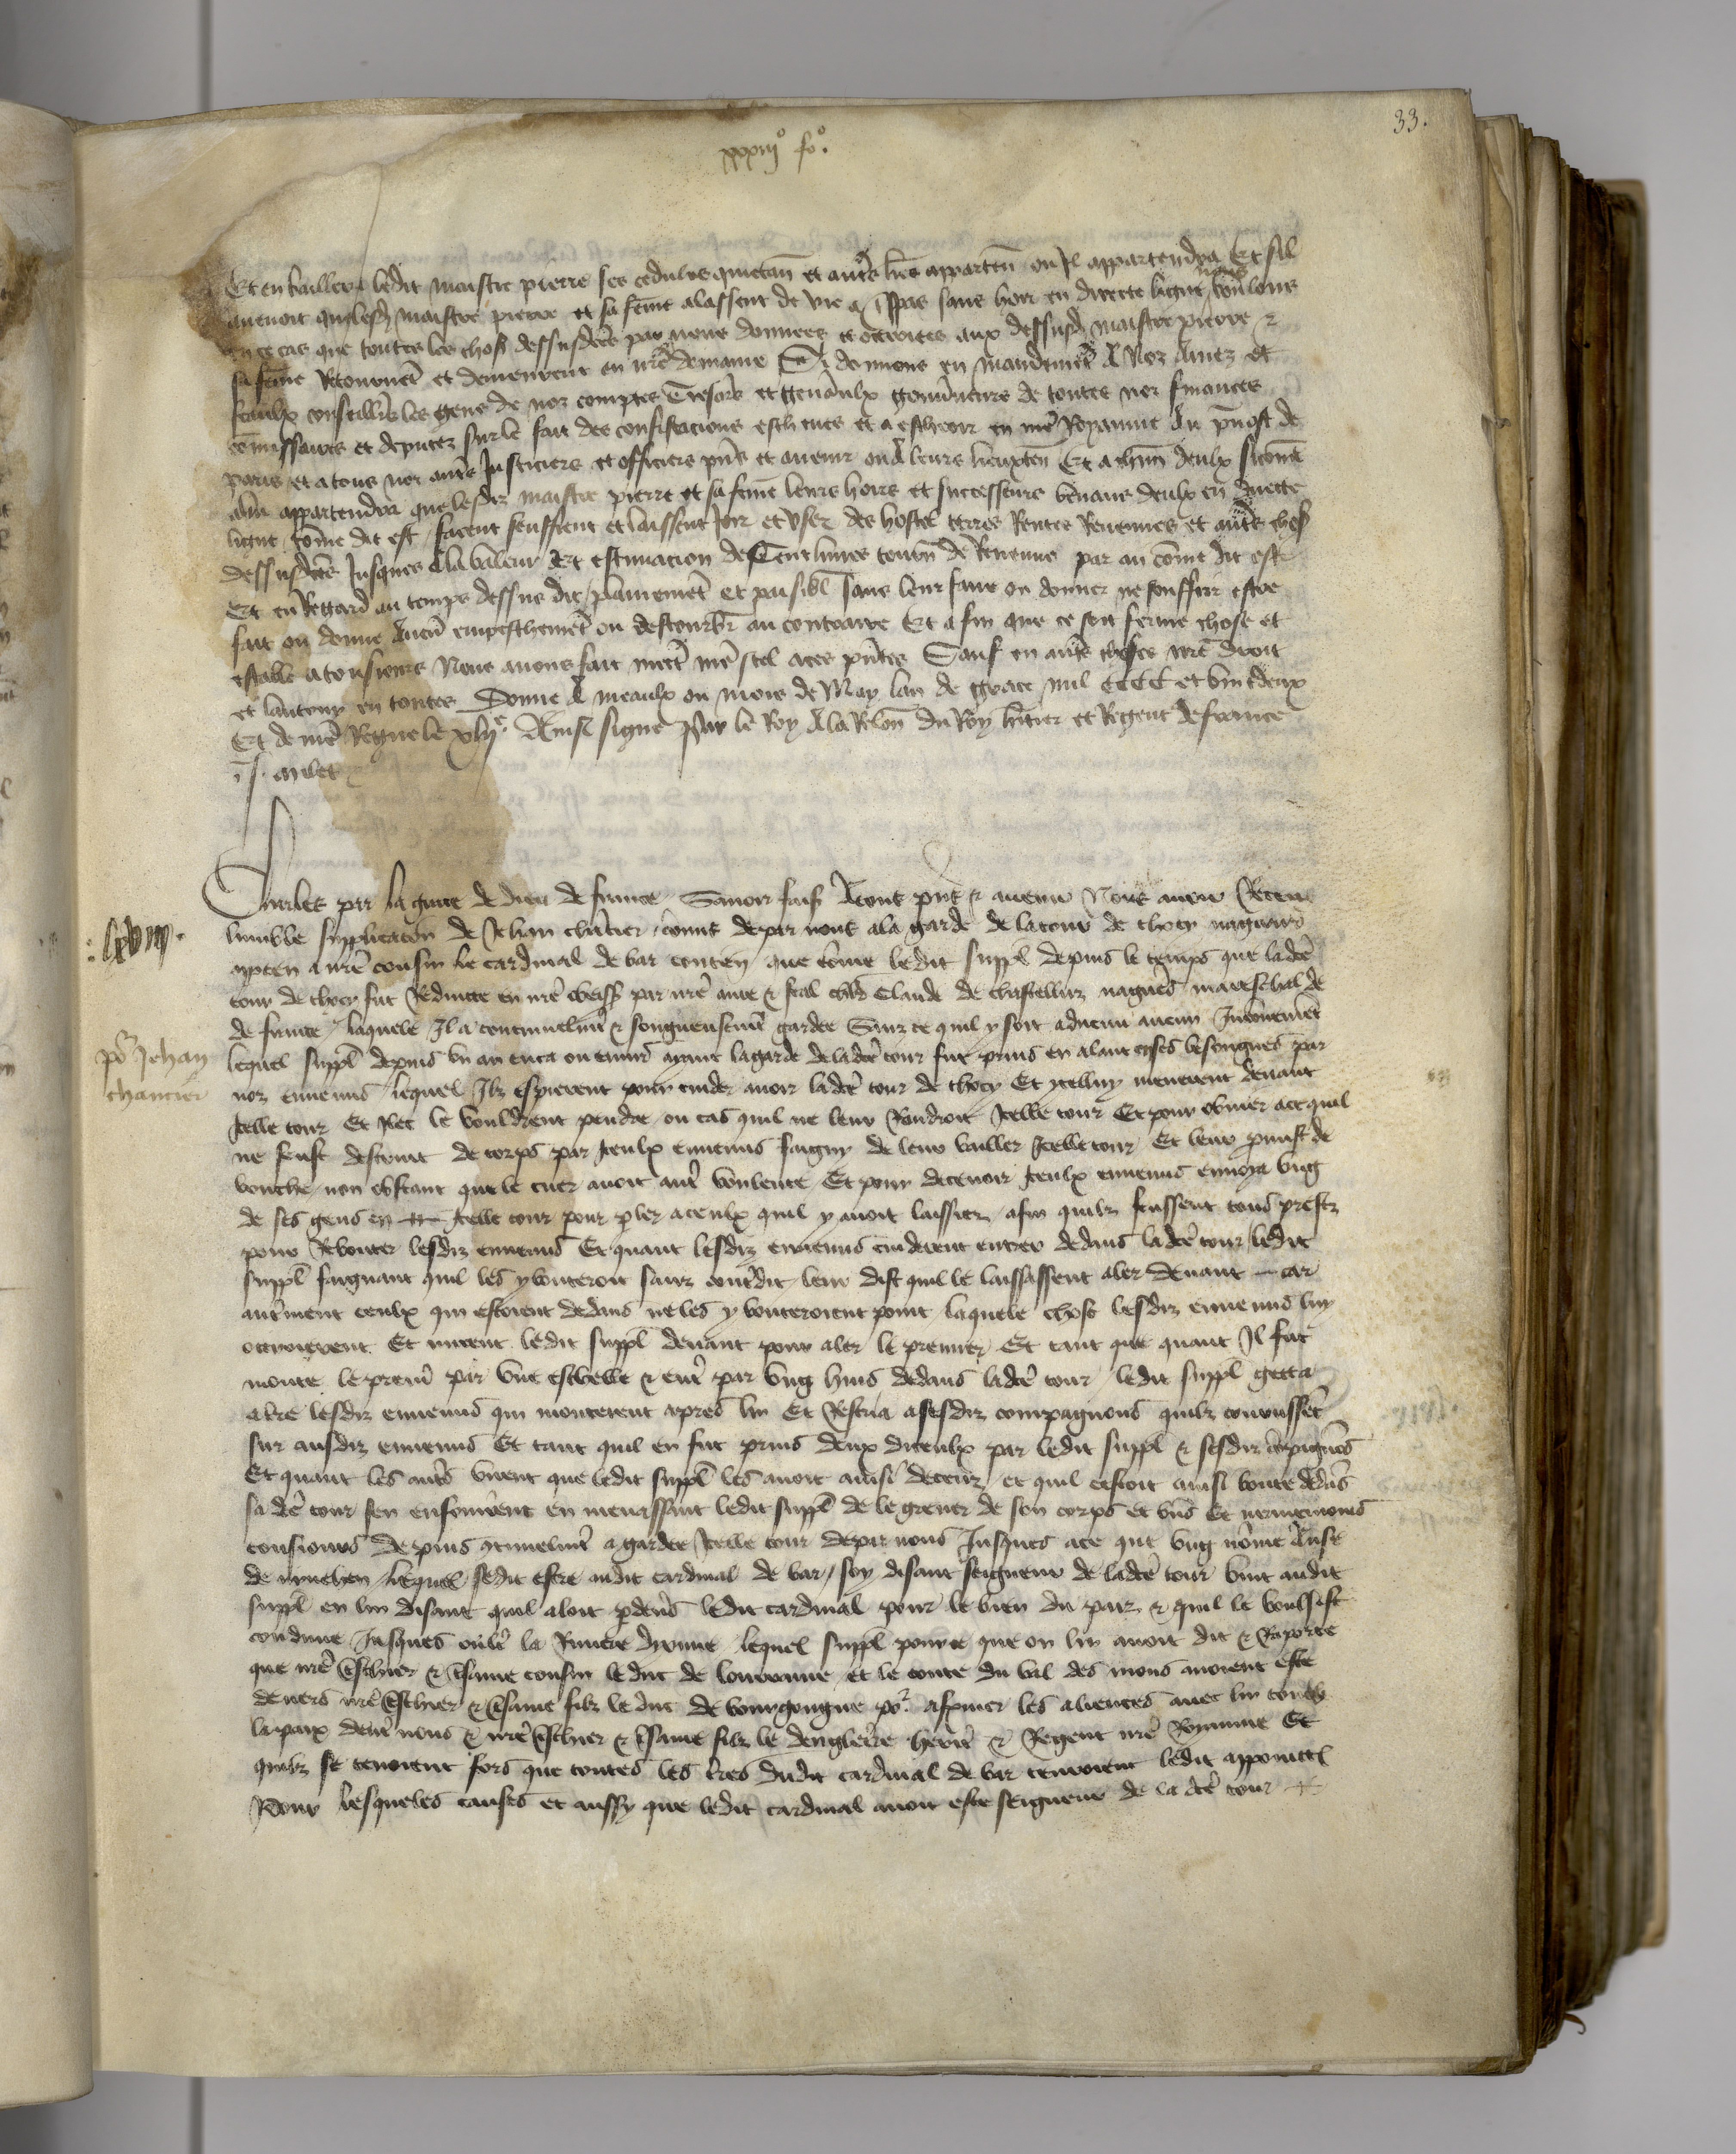 33.
xxxiij° fo°.
Et en baillera ledit maistre pierre ses cedules quictan et autres lres apparten ou Il appartendra Et sil
auenoit que lesd maistre pierre et sa feme alassent de vie a trespas sans hoir en directe ligne nous voulons
en ce cas que toutes les chos dessusdctes par nous donnees et octroiees aux dessusd maistre pierre &
sa feme Retournet et demeurent en nre demaine Si donnons en mandemet A Noz Amez et
feaulx conseillers les gens de noz comptes Tresors et generaulx gouuneurs de toutes noz finances
comissaires et deputez sur le fait des confiscacions escheues et a escheoir en nre Royaume Au puost de
paris et a tous noz autres Justiciers et officiers pns et auenir ou A leurs lieuxten Et a chun deulx sicome
a lui appartendra que lesdiz maistre pierre et sa feme leurs hoirs et successeurs venans deulx en directe
ligne come dit est facent seuffrent et laissent Joir et vser des hostel terres Rentes Reuenues et autres chos
dessusdctes Jusques A la valeur Et estimacion de Cent liures tourn de Reuenue par an come dit est
Et en Regard au temps dessus dit plainemet et paisibl sans leur faire ou donner ne souffrir estre
fait ou donne Aucun empeschemet ou destourbr au contraire Et afin que ce soit ferme chose et
estable a tousiours Nous auons fait mectre nre seel a ces pntes Sauf en autres choses nre droit
et lautruy en toutes Donne A meaulx ou mois de May lan de grace mil CCCC et vint deux
Et de nre Regne le xlij e Ainsi signe Par le Roy A la Relon du Roy heritier et Regent de france
J. milet
Charles par la grace de dieu de france Sauoir fais Atous pns & auenir Nous auoir Receu
lumble supplicacon de Jehan chantier comis de par nous ala garde de la tour de thocy nagaires
apten a nre cousin le cardinal de bar conten que come ledit suppl depuis le temps que ladcte
:lxviij.
tour de thocy fut Reduicte en nre obeiss par nre ame & feal chlr Claude de chastelluz nagues mareschal de
de france laquele Il a continuelmt & songneusemt gardee Sanz ce quil y soit aduenu aucun Inconuenient
po2 Jehan
chantier
lequel suppl depuis vn an enca ou enuiro ayant lagarde deladcte tour fut prins en alant en ses besongnes par
noz ennemis lequel Ilz espierent pour cuider auoir ladcte tour de thocy Et ycelluy menerent deuant
Icelle tour Et Ilec le vouldrent pendre ou cas quil ne leur Rendroit Icelle tour Et pour obuier ace quil
ne feust destruit de corps par Iceulx ennemis faigny de leur bailler Icelle tour Et leur promist de
bouche non obstant que le cuer auoit autre voulente Et pour deceuoir Iceulx ennemis enuoya vng
de ses gens en Icelle tour pour pler aceulx quil y auoit laissiez afin quilz feussent tous prestz
pour Rebouter lesdiz ennemis Et quant lesdiz ennemis cuiderent entrer dedans ladcte tour ledit
suppl faignant quil les y bouteroit sanz contredit leur dist quil le laissassent aler deuant car
autrement ceulx qui estoient dedans ne les y bouteroient point laquele chose lesdiz ennemis luy
octroierent Et mirent ledit suppl deuant pour aler le premier Et tant que quant Il fut
monte le premier par vne eschelle & entre par vng huis dedans ladcte tour ledit suppl getta
abre lesdiz ennemis qui monterent apres lui Et Rescria asesdiz compagnons quilz courussent
sur ausdiz ennemis Et tant quil en fut prins deux diceulx par ledit suppl & sesdiz compaignos
Et quant les autres virent que ledit suppl les auoit ainsi deceuz et quil cestoit ainsi boute dedans
sadcte tour sen enfouirent en menassant ledit suppl de le greuer de son corps et biens Et neantmoins
tousiours depuis continuelmt a gardee Icelle tour depar nous Jusques ace que vng nome Anse
de lequel se dit estre audit cardinal de bar soy disant seigneur de ladcte tour vint audit
suppl en lui disant quil aloit pdeuers ledit cardinal pour le bien du pais & quil le voulsist
conduire Jusques oultre la Riuiere dyonne lequel suppl pource que on lui auoit dit & Raporte
que nre Treschier & Tresame cousin le duc de lourraine et le conte du val des mons auoient este
deuers nre Treschier & Tresame filz le duc de bourgongne po2 afermer les aliences auec lui
lapaix dentre nous & nre Treschier & Tresame filz le dengleterre heritier & Regent nre Royaume Et
quilz se tenoient fors que toutes les tres dudit cardinal de bar tenroient ledit appoinctt
Pour lesqueles causes et aussy que ledit cardinal auoit este seigneur de la dcte tour